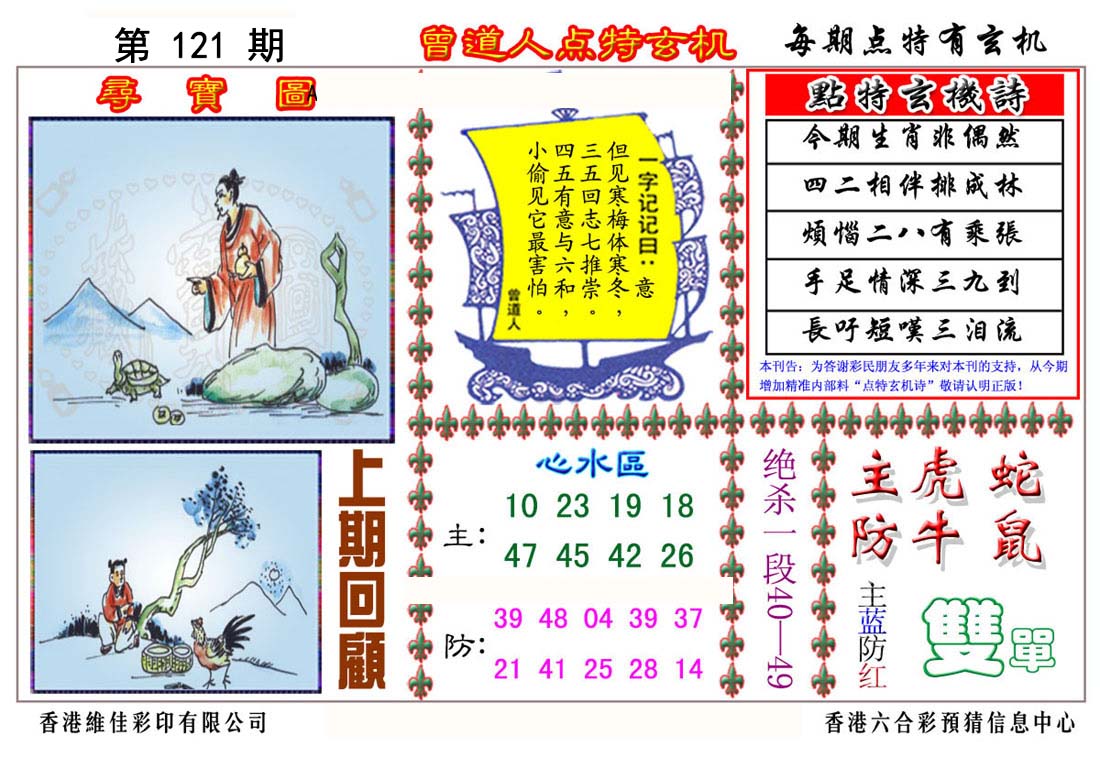 第 121 期
曾道人点特玄机
每期点特有玄机
尋寶圖
A
一字记记曰：意
但见寒梅体寒冬，
三五回志七推崇。
四五有意与六和，
小偷见它最害怕。
曾道人
點特玄機詩
今期生肖非偶然
四二相伴排成林
煩惱二八有乘張
手足情深三九到
長吁短嘆三泪流
本刊告：为答谢彩民朋友多年来对本刊的支持，从今期
增加精准内部料“点特玄机诗”敬请认明正版！
上期回顧
心水區
主：
10 23 19 18
47 45 42 26
防：
39 48 04 39 37
21 41 25 28 14
绝杀一段40—49
主虎 蛇
防牛 鼠
主蓝防红
雙單
香港維佳彩印有限公司
香港六合彩預猜信息中心